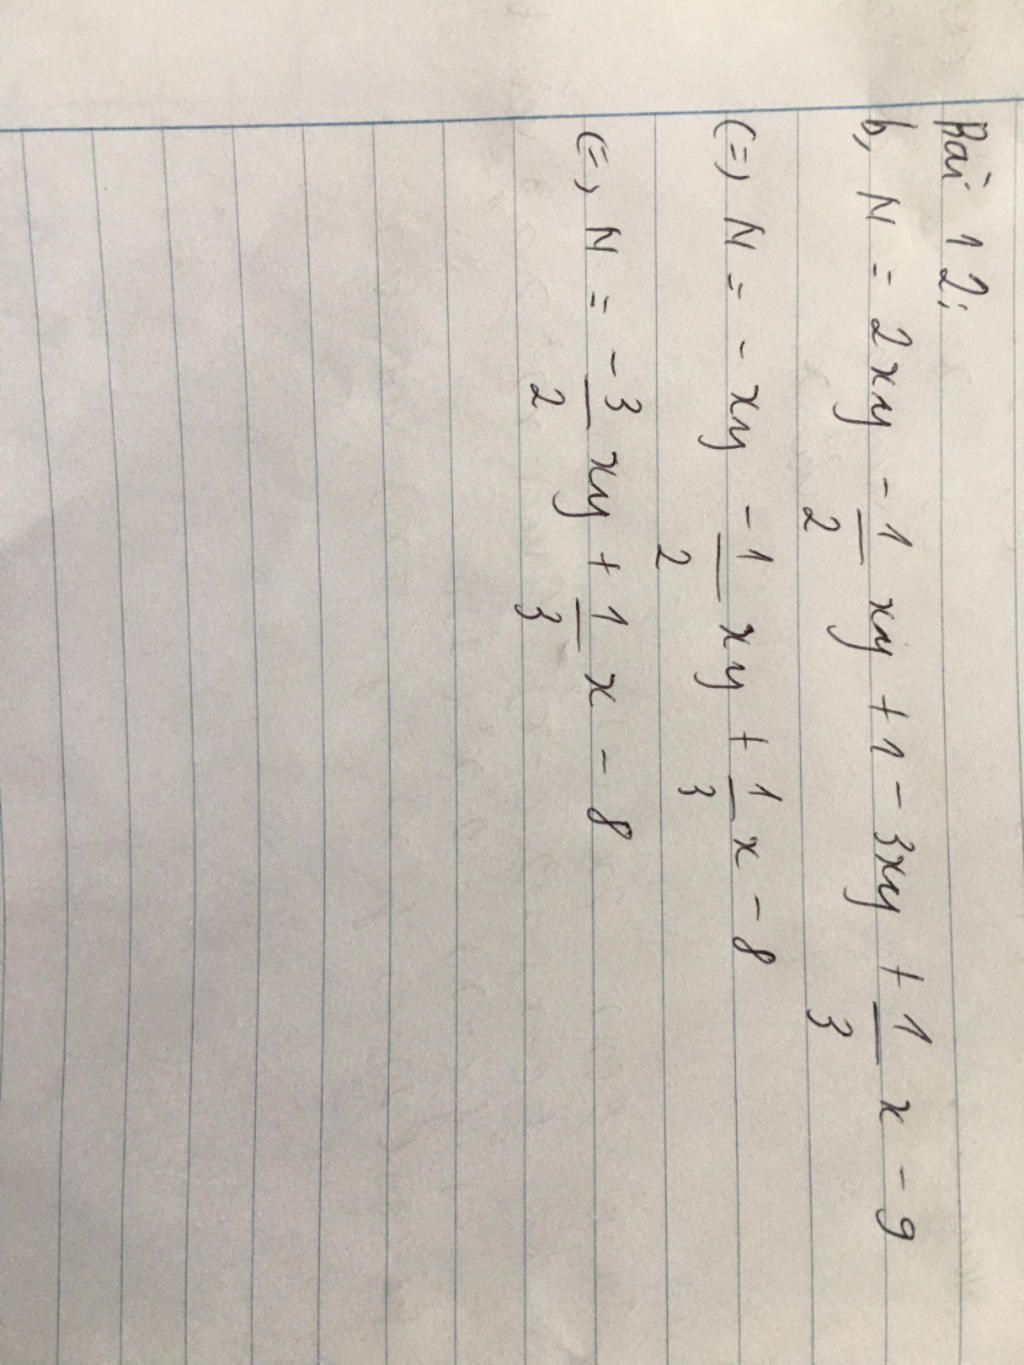 Bài 12:
b, N = 2xy - 1/2 xy + 1 - 3xy + 1/3 x - 9
(=) N = - xy - 1/2 xy + 1/3 x - 8
(=) N = -3/2 xy + 1/3 x - 8